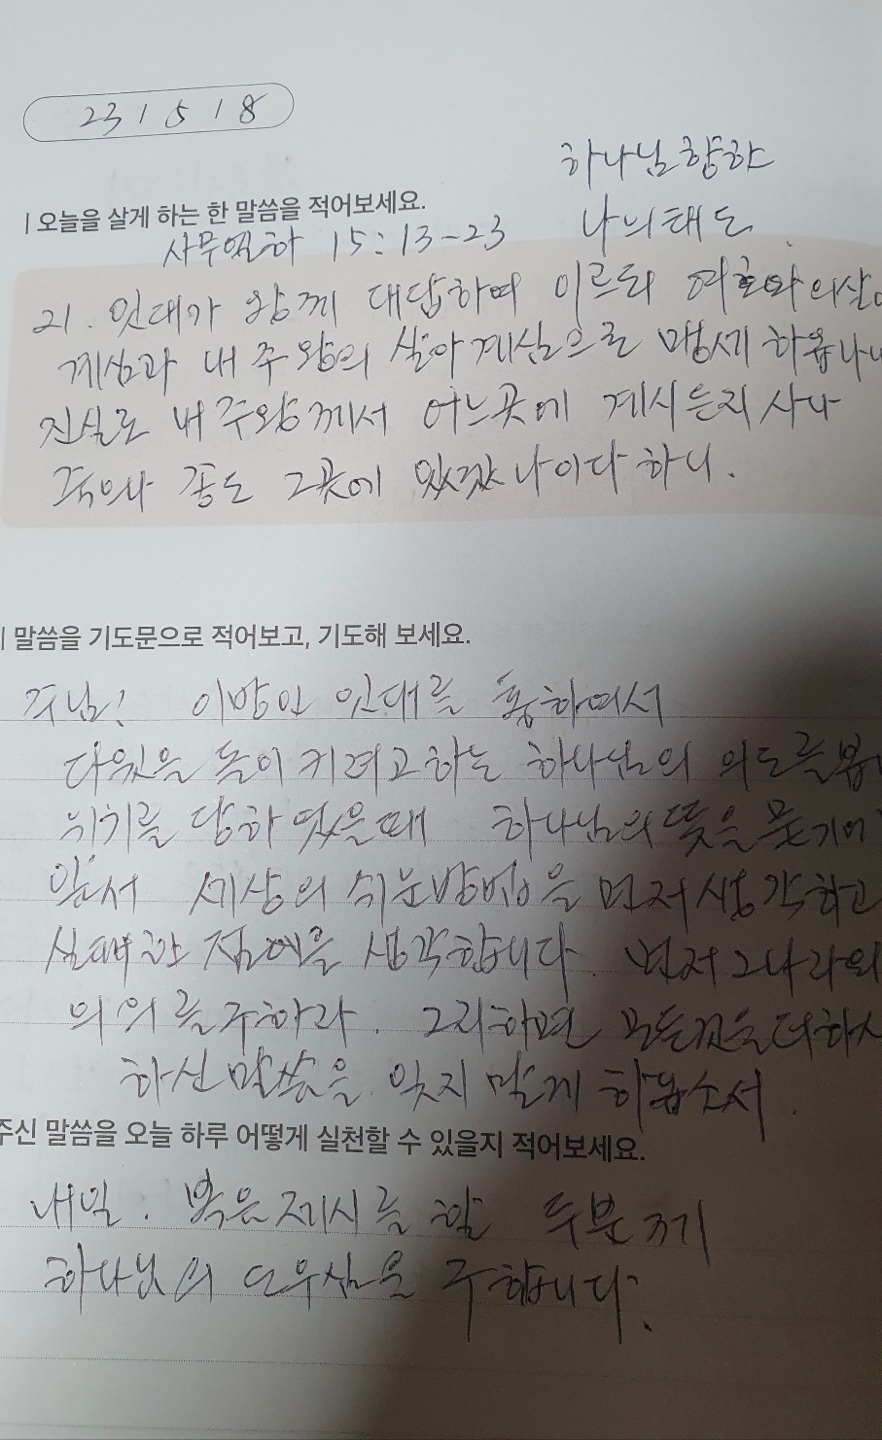 23 / 5 / 8
하나님 향한
| 오늘을 살게 하는 한 말씀을 적어보세요.
나의 태도
사무엘하 15:13-23
21. 잇대가 왕께 대답하여 이르되 여호와의 살아
계심과 내 주 왕의 살아 계심으로 맹세 하옵나니
진실로 내 주 왕께서 어느 곳에 계시든지 사나
죽으나 종도 그곳에 있겠나이다 하니.
말씀을 기도문으로 적어보고, 기도해 보세요.
주님! 이방인 잇대를 통하여서
다윗을 돌이키려고 하는 하나님의 의도를
위기를 당하였을 때 하나님의 뜻을 묻기에
앞서 세상의 쉬운 방법을 먼저 생각하고
실패한 점들을 생각합니다. 먼저 그 나라와
의 의를 구하라. 그리하면 모든 것을 더하시
하신 말씀을 잊지 말게 하옵소서.
주신 말씀을 오늘 하루 어떻게 실천할 수 있을지 적어보세요.
내일. 제시를 할 두 분께
하나님의 도우심을 구합니다.